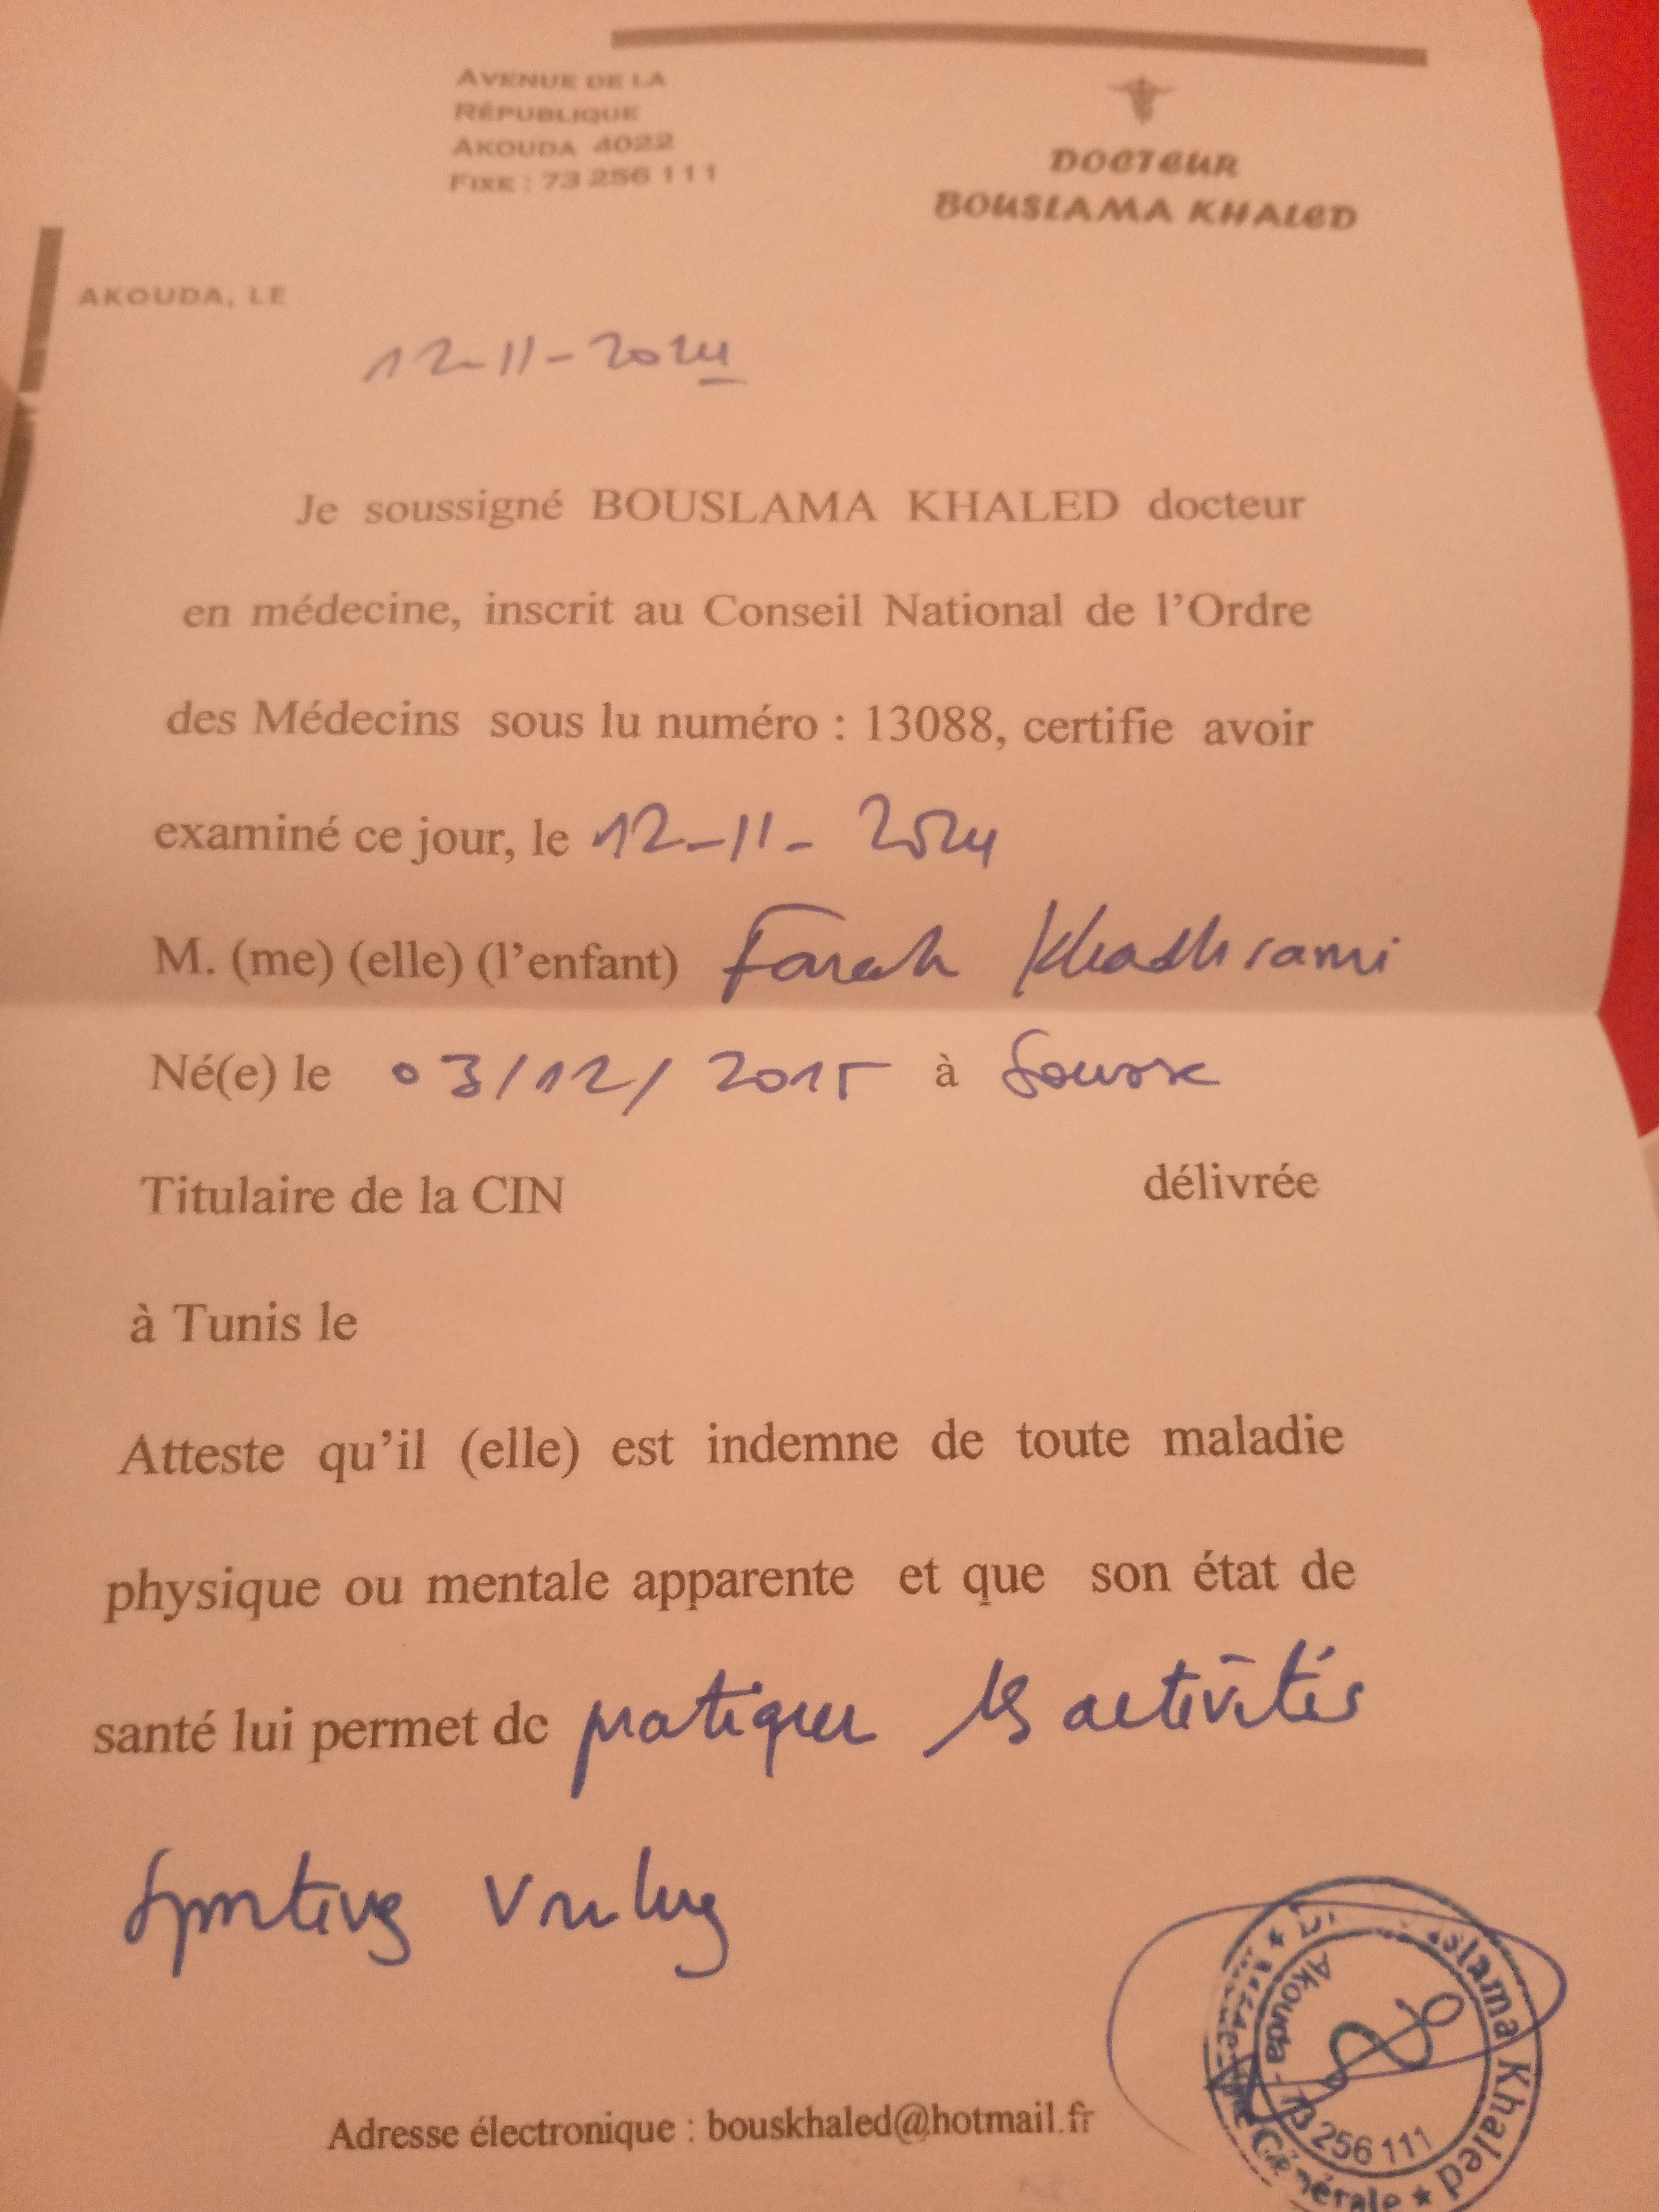 AVENUE DE LA
RÉPUBLIQUE
AKOUDA 4022
FIXE : 73 256 111
DOCTEUR
BOUSLAMA KHALED
AKOUDA, LE
12-11-2024
Je soussigné BOUSLAMA KHALED docteur
en médecine, inscrit au Conseil National de l'Ordre
des Médecins sous lu numéro : 13088, certifie avoir
examiné ce jour, le 12-11-2024
M. (me) (elle) (l'enfant) Farah Khadhrami
Né(e) le 03/12/2015 à Sousse
Titulaire de la CIN délivrée
à Tunis le
Atteste qu'il (elle) est indemne de toute maladie
physique ou mentale apparente et que son état de
santé lui permet de pratiquer les activités
sportives
Adresse électronique : bouskhaled@hotmail.fr
Khaled
Akouda - 73 256 111
Générale